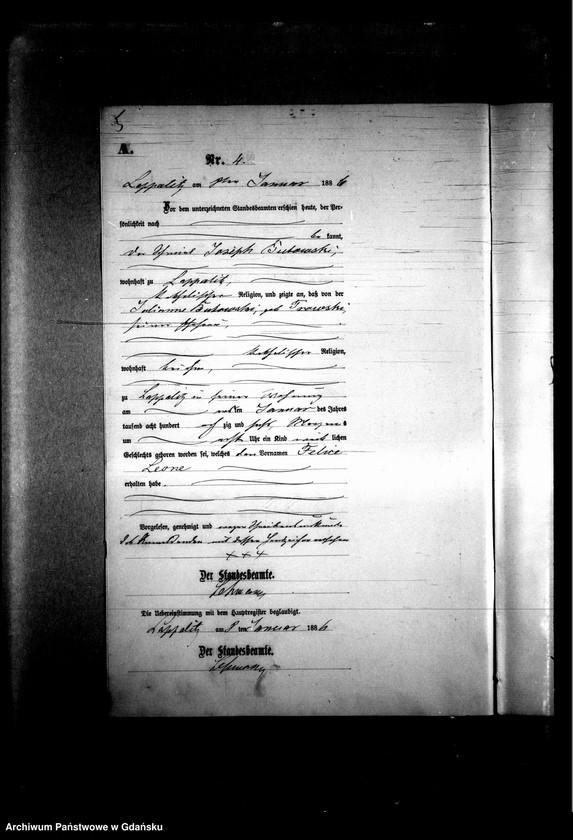 5
A.
Nr. 4.
Lappalitz am 8ten Januar 1886
Vor dem unterzeichneten Standesbeamten erschien heute, der Per-
sönlichkeit nach
be kannt,
der Joseph Butowski,
wohnhaft zu Lappalitz,
katholischer Religion, und zeigte an, daß von der
Julianne Butowski, geb
seiner Ehefrau,
katholischer Religion,
wohnhaft bei ihm,
zu Lappalitz in seiner Wohnung
am ten Januar des Jahres
tausend acht hundert acht zig und sechs, Morgens
um Uhr ein Kind lichen
Geschlechts geboren worden sei, welches den Vornamen Felice
Leone
erhalten habe.
Vorgelesen, genehmigt und wegen
des Anmeldenden mit dessen Handzeichen versehen
+ + +
Der Standesbeamte.
Die Uebereinstimmung mit dem Hauptregister beglaubigt.
Lappalitz am 8 ten Januar 1886
Der Standesbeamte.
Archiwum Państwowe w Gdańsku